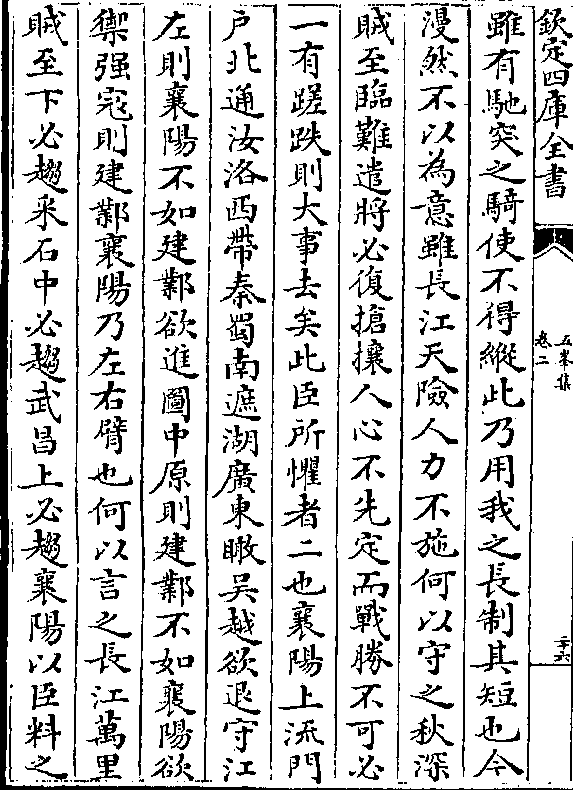 欽定四庫全書
五峯集
卷二
二十六
雖有馳突之騎使不得縱此乃用我之長制其短也今
漫然不以為意雖長江天險人力不施何以守之秋深
賊至臨難遣將必復搶攘人心不先定而戰勝不可必
一有蹉跌則大事去矣此臣所懼者二也襄陽上流門
戶北通汝洛西帶秦蜀南遮湖廣東瞰吳越欲退守江
左則襄陽不如建鄴欲進圖中原則建鄴不如襄陽欲
禦强寇則建鄴襄陽乃左右臂也何以言之長江萬里
賊至下必趨采石中必趨武昌上必趨襄陽以臣料之